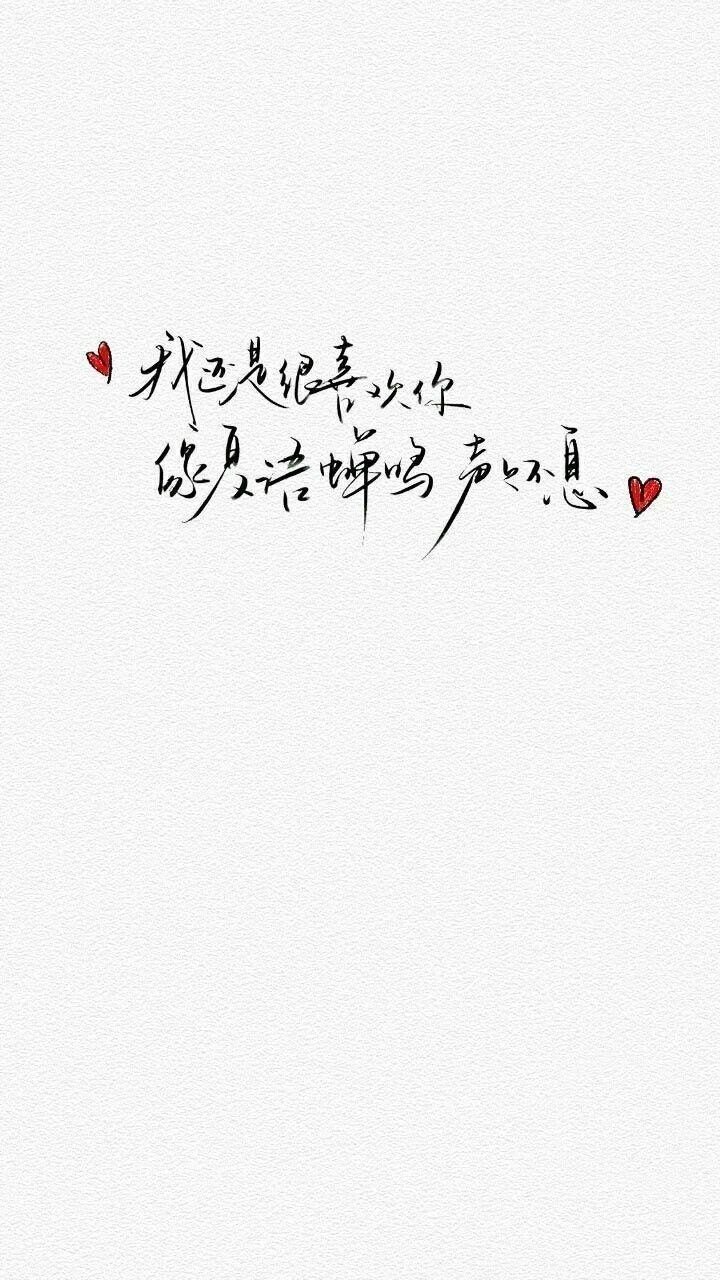 我还是很喜欢你
像夏语蝉鸣 声声不息